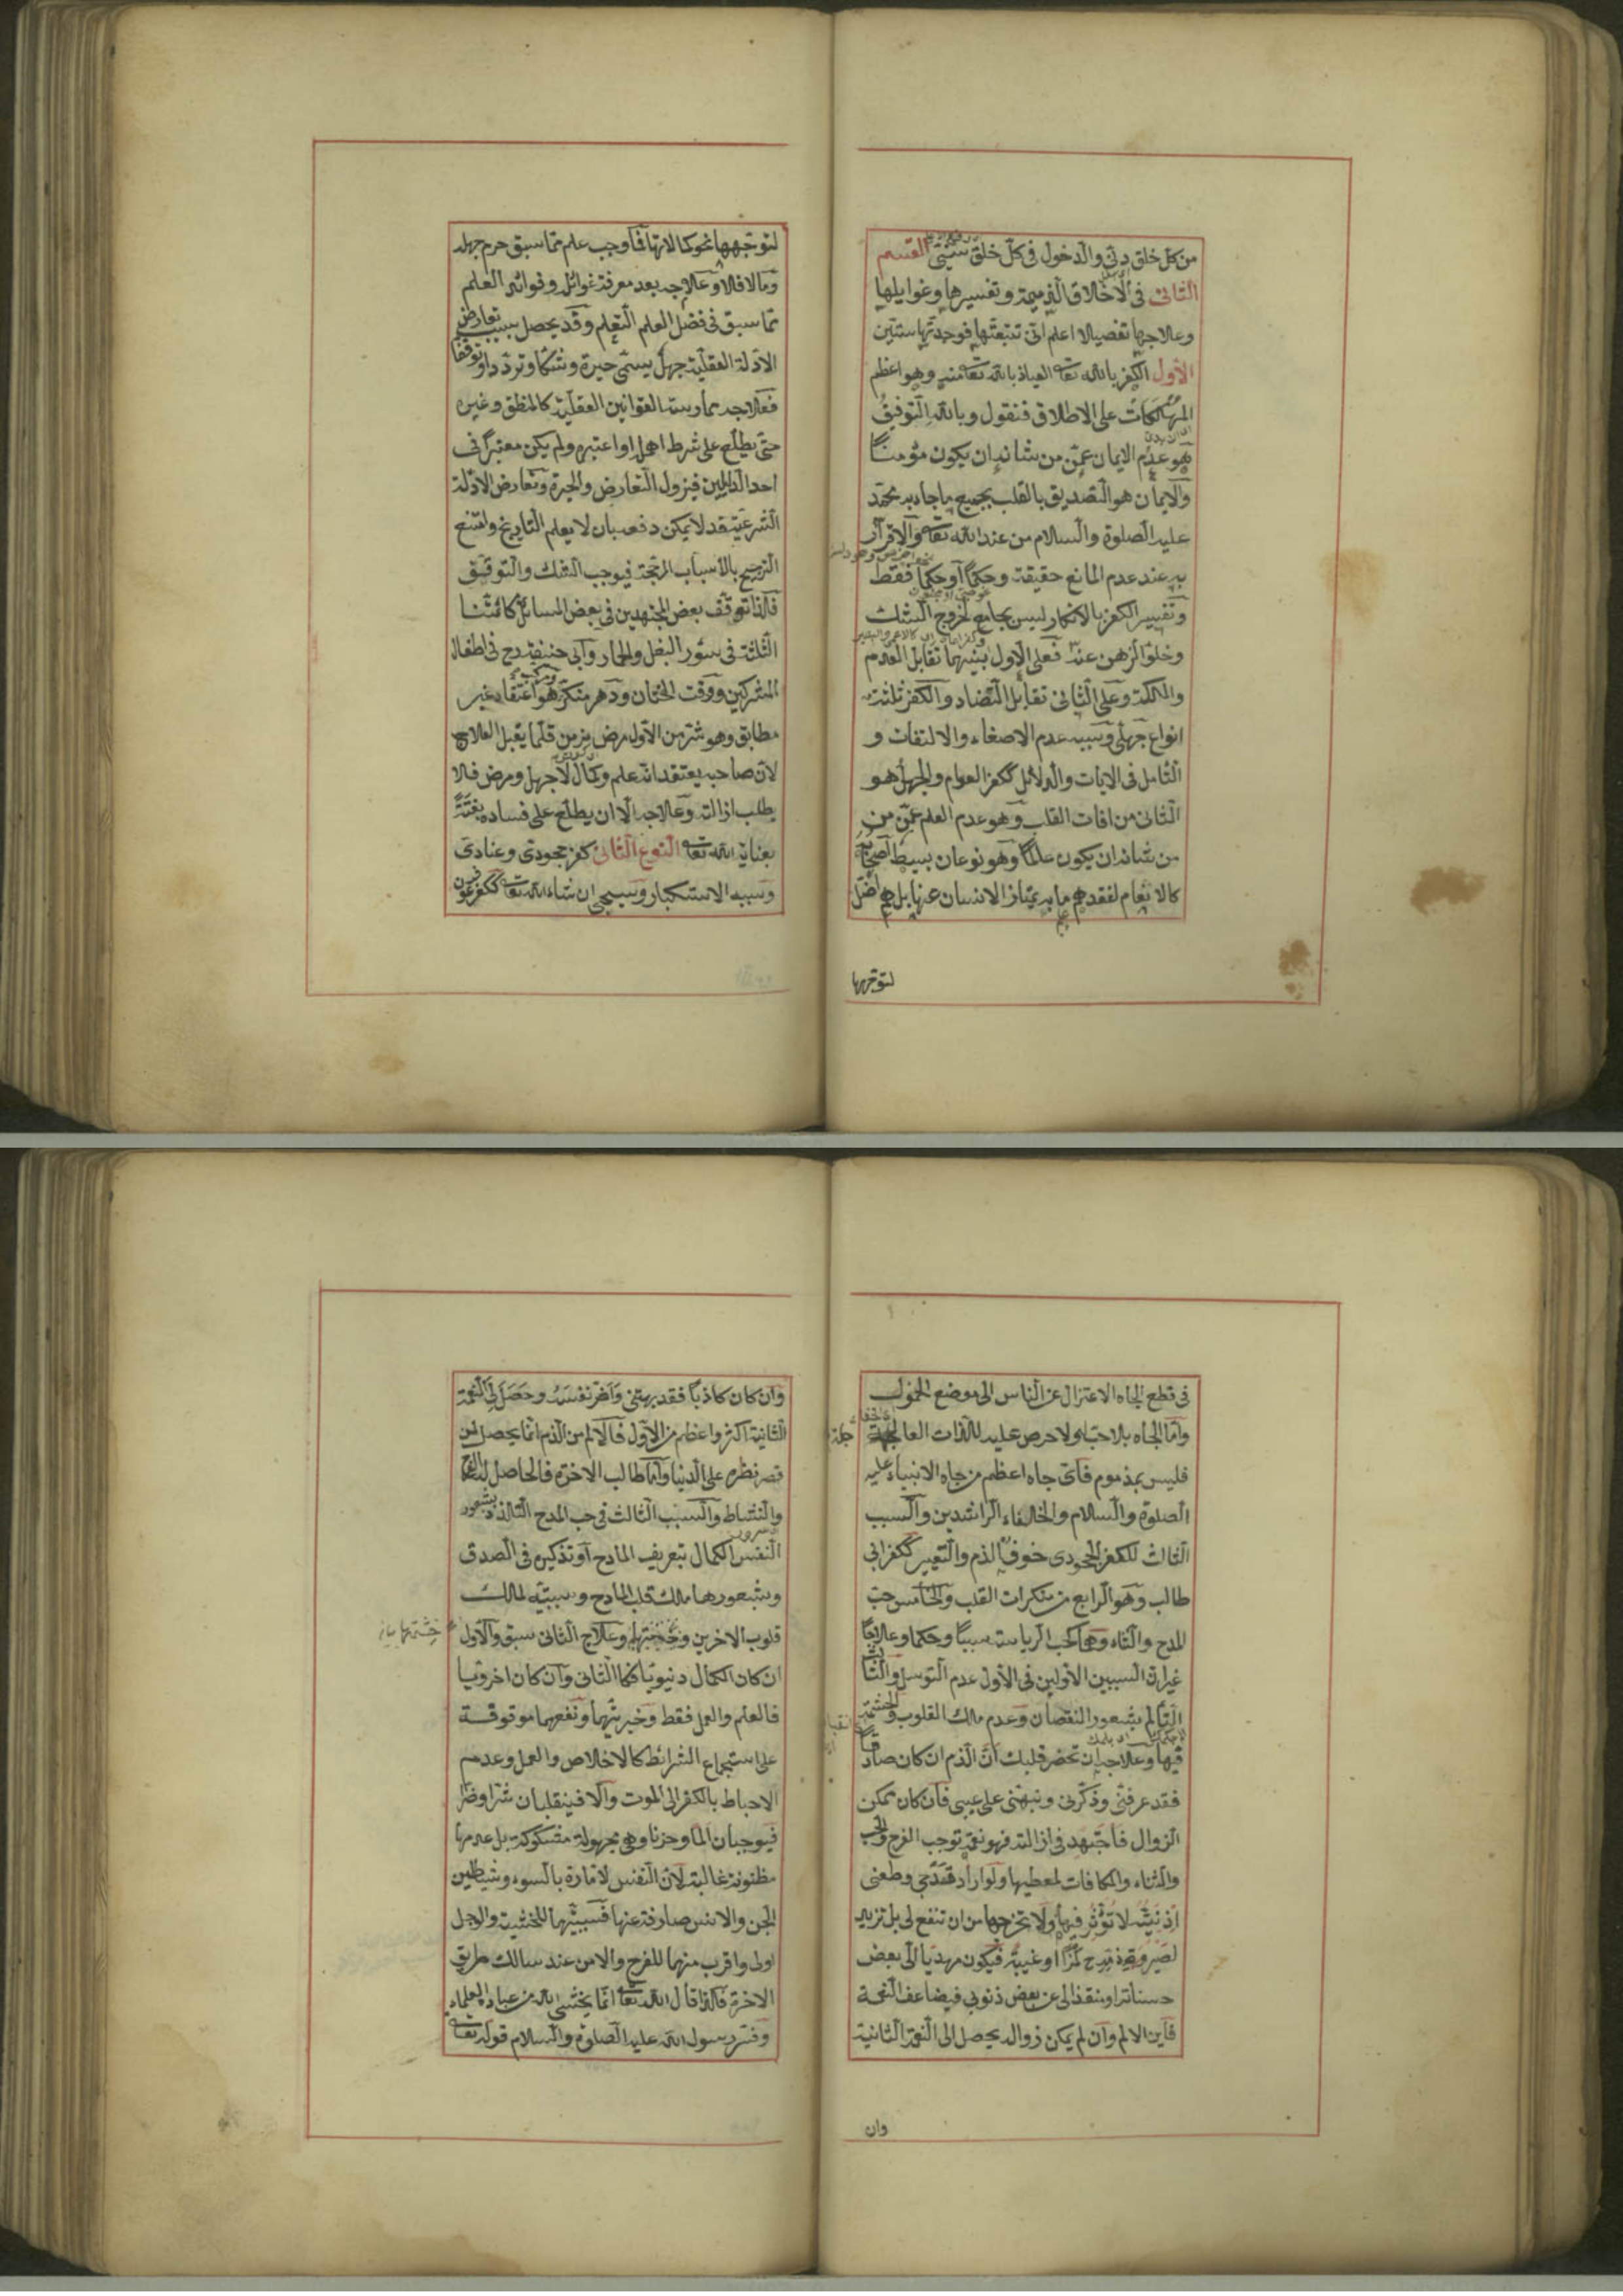 من كل خلق دنّي والدخول في كل خلق سنّي القسم
الثاني في الاخلاق الذميمة وتفسيرها وغوايلها
وعلاجها تفصيلا اعلم اني تتبعتها فوجدتها ستين
الاول الكفر بالله تعا العياذ بالله تعا منه وهو اعظم
المهلكات على الاطلاق فنقول وبالله التوفيق
هو عدم الايمان عمّن من شانه ان يكون مؤمناً
والايمان هو التصديق بالقلب بجميع ماجاء به محمّد
عليه الصلوة والسلام من عند الله تعا والاقرار
به عند عدم المانع حقيقة وحكماً او حكماً فقط
وتفسير الكفر بالانكار ليس بجامع لخروج الشك
وخلو الذهن عنه فعلى الاول بينهما تقابل العدم
والملكة وعلى الثاني تقابل التضاد والكفر ثلثة
انواع جهلي وسببه عدم الاصغاء والالتفات و
التامل في الايات والدلائل ككفر العوام والجهل هو
الثاني من افات القلب وهو عدم العلم عمّن من
من شانه ان يكون عالماً وهو نوعان بسيط اصحابه
كالانعام لفقدهم ما به يمتاز الانسان عنها بل هم اضل
لتوجهها
لتوجهها نحو كمالاتها فما وجب علم مما سبق حرم جهله
وما لا فلا وعلاجه بعد معرفة غوائله وفوائد العلم
مما سبق في فضل العلم التعلم وقد يحصل بسبب تعارض
الادلة العقلية جهل يسمّى حيرة وشكا وترددا وتوقفا
فعلاجه ممارسة القوانين العقلية كالمنطق وغيره
حتى يطلع على شرط اهمل او اعتبر ولم يكن معتبرا في
احد الدليلين فيزول التعارض والحيرة وتعارض الادلة
الشرعية قد لا يمكن دفعه بان لا يعلم التاريخ وامتنع
الترجيح بالاسباب المرجحة فيوجب الشك والتوقف
فلذا توقف بعض المجتهدين في بعض المسائل كائمتنا
الثلثة في سؤر البغل والحمار وابي حنيفة رح في اطفال
المشركين ووقت الختان ودهر منكر هو اعتقاد غير
مطابق وهو شر من الاول مرض مزمن قلما يقبل العلاج
لان صاحبه يعتقد انه علم وكمال لا جهل ومرض فلا
يطلب ازالته وعلاجه الا ان يطلع على فساده بغتةً
بعناية الله تعا النوع الثاني كفر جحودي وعنادي
وسببه الاستكبار وسيجي ان شاء الله تعا ككفر فرعون
في قطع الجاه الاعتزال عن الناس الى موضع الخمول
واما الجاه بلا حبّ ولا حرص عليه للذات العاجلة
فليس بمذموم فاي جاه اعظم من جاه الانبياء عليه
الصلوة والسلام والخلفاء الراشدين والسبب
الثالث للكفر الجحودي خوف الذم والتعيير ككفر ابي
طالب وهو الرابع من منكرات القلب والخامس حبّ
المدح والثناء وهما كحب الرياسة سببا وحكما وعلاجا
غير ان السببين الاولين في الاول عدم التوسل والثالث
التألم بشعور النقصان وعدم ملك القلوب والحشمة
فيها وعلاجه ان تحضر قلبك ان الذم ان كان صادقا
فقد عرفني وذكرني ونبهني على عيبي فان كان يمكن
الزوال فاجتهد في ازالته فهو نعمة توجب الفرح والحب
والثناء والمكافات لمعطيها ولو اراد قدحي وطعني
اذ نيته لا تؤثر فيها ولا تخرجها من ان تنفع لي بل تزيد
لصيرورة ذمه قدح لمزا او غيبة فيكون مهديا الى بعض
حسناته او منقذا لي عن بعض ذنوبي فيضاعف النعمة
فاين الالم وان لم يمكن زواله يحصل لي النعمة الثانية
وان
وان كان كاذبا فقد بهتني واضرّ نفسه وحصل لي النعمة
الثانية اكثر واعظم من الاول فالالم من الذم انما يحصل لمن
قصر نظره على الدنيا واما طالب الاخرة فالحاصل له الفرح
والنشاط والسبب الثالث في حب المدح التلذذ بشعور
النفس الكمال بتعريف المادح او تذكيره في الصدق
وشعورها ملك قلب المادح وسببيته لملك
قلوب الاخرين وحشمتها وعلاج الثاني سبق والاول
ان كان الكمال دنيويا فكما الثاني وان كان اخرويا
فالعلم والعمل فقط وخيريتهما ونفعهما موقوفة
على استجماع الشرائط كالاخلاص والعمل وعدم
الاحباط بالكفر الى الموت والا فينقلبان شرا وضرا
فيوجبان الما وحزنا وهي مجهولة مشكوكة بل عدمها
مظنونة غالبة لان النفس لامارة بالسوء وشياطين
الجن والانس صارفة عنها فسببيتهما للخشية والوجل
اولى واقرب منهما للفرح والامن عند سالك طريق
الاخرة فلذا قال الله تعا انما يخشى الله من عباده العلماء
وفسر رسول الله عليه الصلوة والسلام قوله تعا